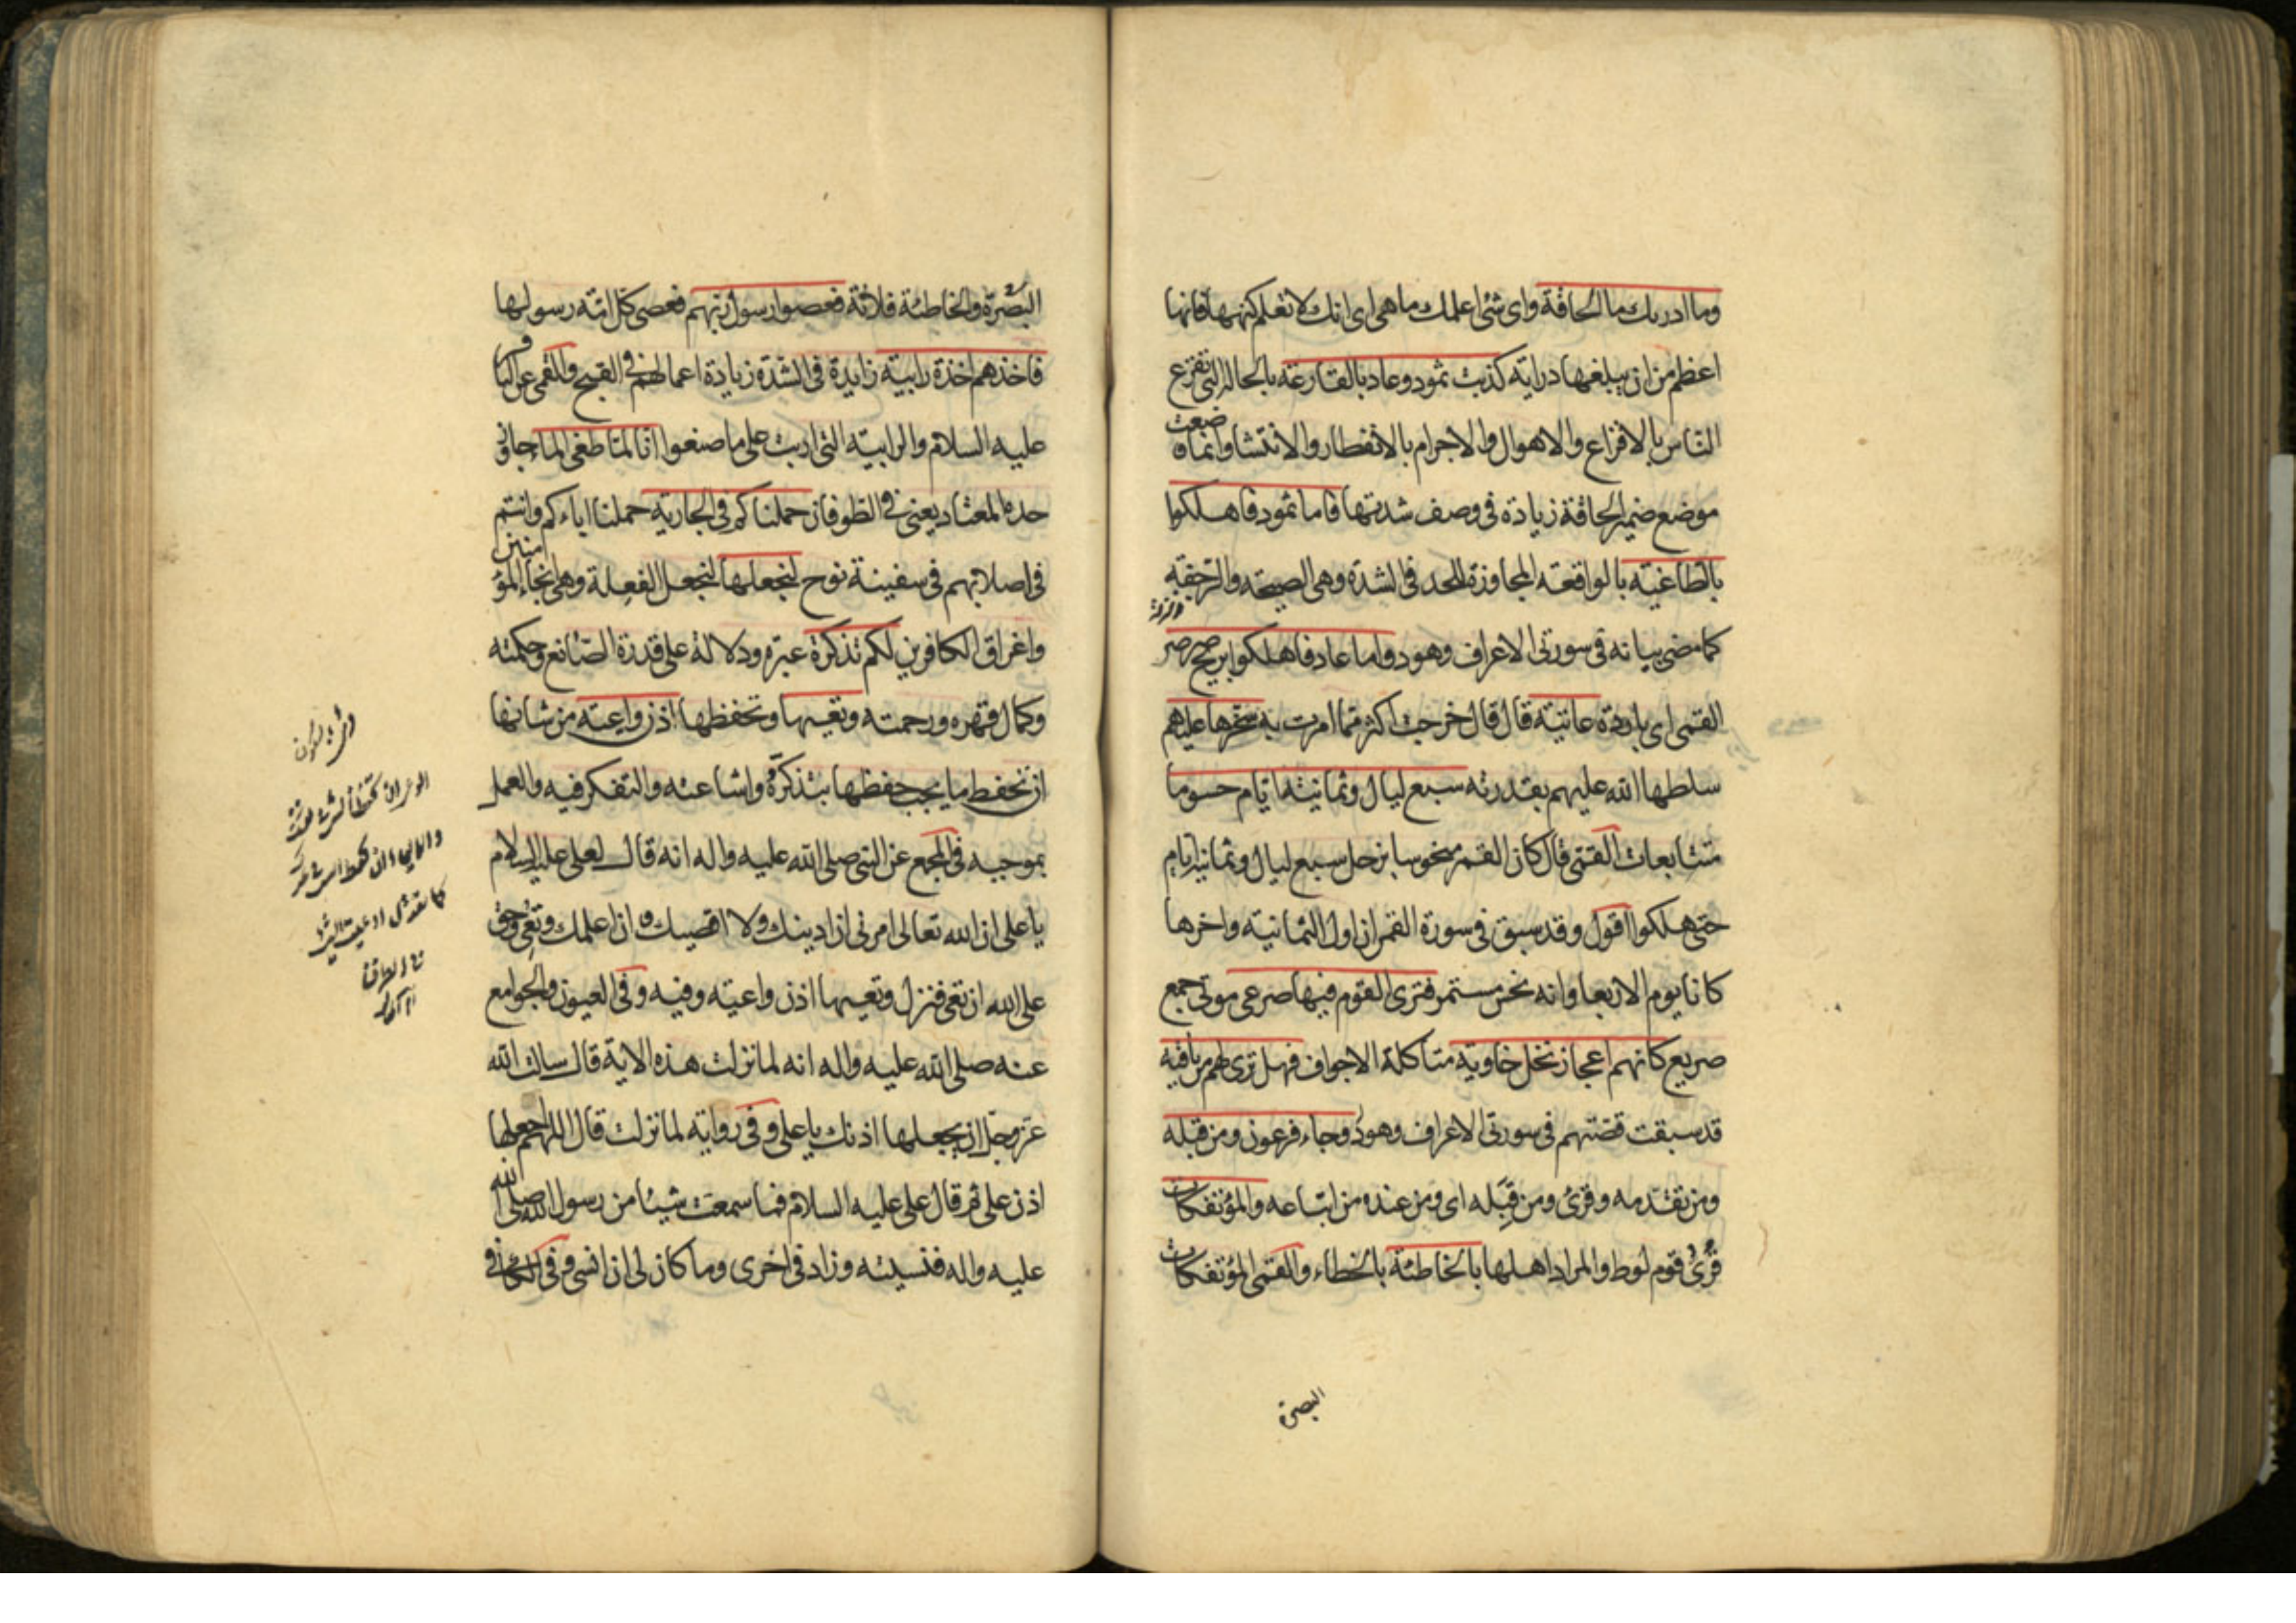 وما ادريك ما الحاقة واى شئ اعلمك ما هى اى انك لا تعلم كنهها فانها
اعظم من ان يبلغها دراية كذبت ثمود وعاد بالقارعة بالحالة التى تقرع
الناس بالافزاع والاهوال والاجرام بالانفطار والانتشار وانما وضعت
موضع ضمير الحاقة زيادة فى وصف شدتها فاما ثمود فاهلكوا
بالطاغية بالواقعة المجاوزة للحد فى الشدة وهى الصيحة والرجفة
كما مضى بيانه فى سورتى الاعراف وهود واما عاد فاهلكوا بريح صرصر
القمى اى باردة عاتية قال قال خرجت اكثر مما امرت به سخرها عليهم
سلطها الله عليهم بقدرته سبع ليال وثمانية ايام حسوما
متتابعات القمى قال كان القمر منحوسا بزحل سبع ليال وثمانية ايام
حتى هلكوا اقول وقد سبق فى سورة القمر ان اول الثمانية واخرها
كانا يوم الاربعا وانه نحس مستمر فترى القوم فيها صرعى موتى جمع
صريع كانهم اعجاز نخل خاوية متاكلة الاجواف فهل ترى لهم من باقية
قد سبقت قصتهم فى سورتى الاعراف وهود وجاء فرعون ومن قبله
ومن تقدمه وقرئ ومن قِبَله اى ومن عنده من اتباعه والمؤتفكات
قُرئ قوم لوط والمراد اهلها بالخاطئة بالخطاء والقمى المؤتفكات
البصرة
البَصْرة والخاطئة فلانة فعصوا رسول ربهم فعصى كل امة رسولها
فاخذهم اخذة رابية زايدة فى الشدة زيادة اعمالهم فى القبح والقمى عن الباقر
عليه السلام والرابية التى اربت على ما صنعوا انا لما طغى الماء جاوز
حده المعتاد يعنى فى الطوفان حملناكم فى الجارية حملنا اباءكم وانتم
فى اصلابهم فى سفينة نوح لنجعلها لنجعل الفعلة وهى انجاء المؤمنين
واغراق الكافرين لكم تذكرة عبرة ودلالة على قدرة الصانع وحكمته
وكمال قهره ورحمته وتعيها وتحفظها اذن واعية من شانها
ان تحفظ ما يجب حفظها بتذكّره واشاعته والتفكر فيه والعمل
بموجبه فى المجمع عن النبى صلى الله عليه واله انه قال لعلى عليه السلام
يا على ان الله تعالى امرنى ان ادينك ولا اقصيك وان اعلمك وتعى وحق
على الله ان تعى فنزل وتعيها اذن واعية وفيه وفى العيون والجوامع
عنه صلى الله عليه واله انه لما نزلت هذه الاية قال سالت الله
عز وجل ان يجعلها اذنك يا على وفى رواية لما نزلت قال اللهم اجعلها
اذن على ثم قال على عليه السلام فما سمعت شيئا من رسول الله صلى الله
عليه واله فنسيته وزاد فى اخرى وما كان لى ان انسى وفى الكافى